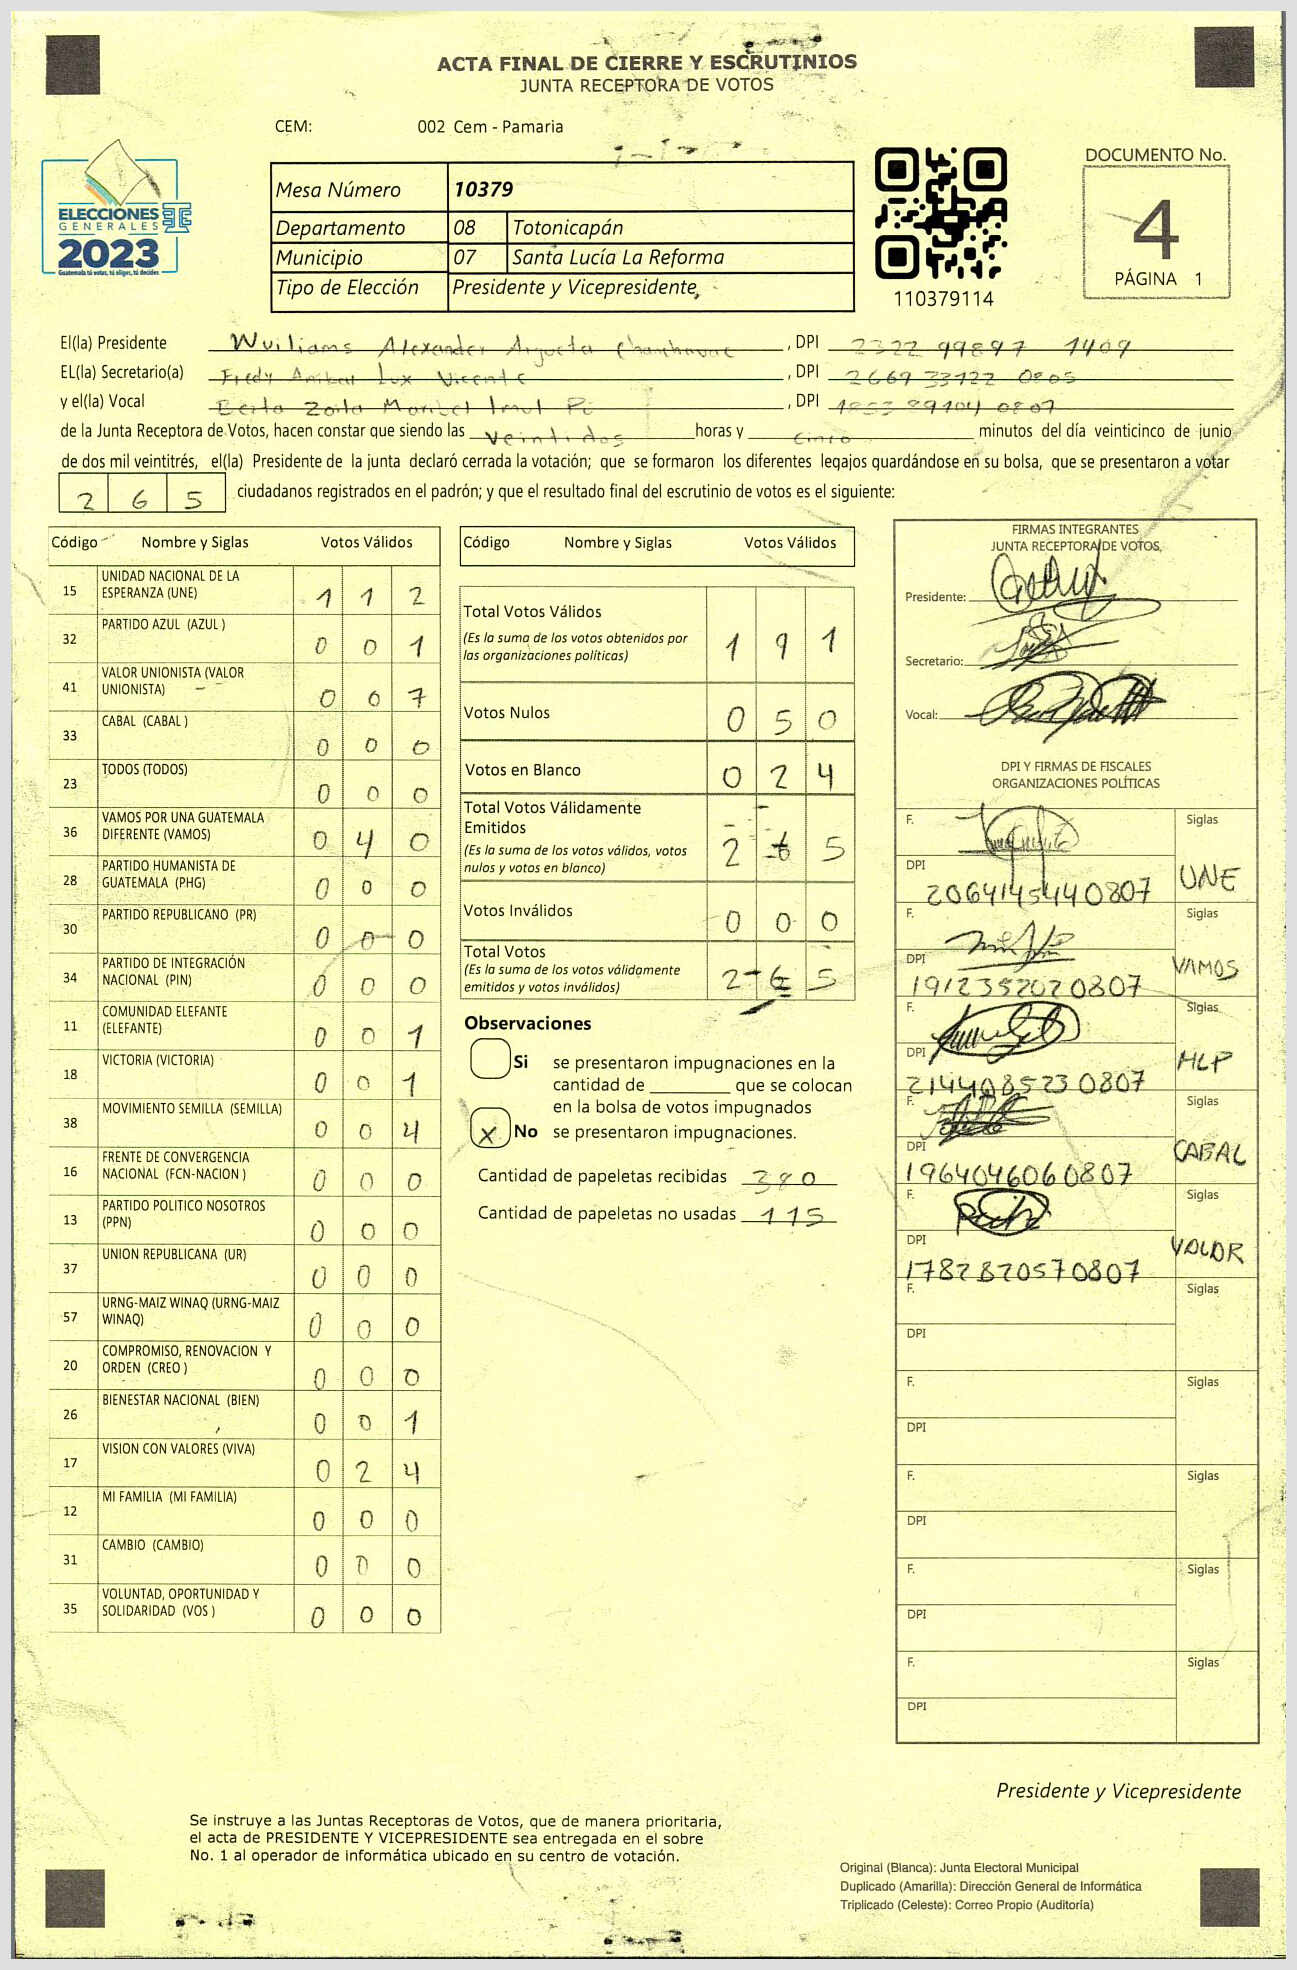 ACTA FINAL DE CIERRE Y ESCRUTINIOS
JUNTA RECEPTORA DE VOTOS
CEM: 002 Cem - Pamaria
ELECCIONES
GENERALES
2023
Guatemala tú votas, tú eliges, tú decides
Mesa Número 10379
Departamento 08 Totonicapán
Municipio 07 Santa Lucía La Reforma
Tipo de Elección Presidente y Vicepresidente
110379114
DOCUMENTO No.
4
PÁGINA 1
El(la) Presidente Wuiliams Alexander Argueta , DPI 2322 99897 1409
EL(la) Secretario(a) Fredy Anibal Lux Vicente , DPI 2669 33122 0805
y el(la) Vocal Berta Zoila Maribel Imul , DPI 1853 89104 0807
de la Junta Receptora de Votos, hacen constar que siendo las veintidos horas y cinco minutos del día veinticinco de junio
de dos mil veintitrés, el(la) Presidente de la junta declaró cerrada la votación; que se formaron los diferentes legajos guardándose en su bolsa, que se presentaron a votar
2 6 5 ciudadanos registrados en el padrón; y que el resultado final del escrutinio de votos es el siguiente:
Código Nombre y Siglas Votos Válidos
15 UNIDAD NACIONAL DE LA ESPERANZA (UNE) 1 1 2
32 PARTIDO AZUL (AZUL ) 0 0 1
41 VALOR UNIONISTA (VALOR UNIONISTA) 0 0 7
33 CABAL (CABAL ) 0 0 0
23 TODOS (TODOS) 0 0 0
36 VAMOS POR UNA GUATEMALA DIFERENTE (VAMOS) 0 4 0
28 PARTIDO HUMANISTA DE GUATEMALA (PHG) 0 0 0
30 PARTIDO REPUBLICANO (PR) 0 0 0
34 PARTIDO DE INTEGRACIÓN NACIONAL (PIN) 0 0 0
11 COMUNIDAD ELEFANTE (ELEFANTE) 0 0 1
18 VICTORIA (VICTORIA) 0 0 1
38 MOVIMIENTO SEMILLA (SEMILLA) 0 0 4
16 FRENTE DE CONVERGENCIA NACIONAL (FCN-NACION ) 0 0 0
13 PARTIDO POLITICO NOSOTROS (PPN) 0 0 0
37 UNION REPUBLICANA (UR) 0 0 0
57 URNG-MAIZ WINAQ (URNG-MAIZ WINAQ) 0 0 0
20 COMPROMISO, RENOVACION Y ORDEN (CREO ) 0 0 0
26 BIENESTAR NACIONAL (BIEN) 0 0 1
17 VISION CON VALORES (VIVA) 0 2 4
12 MI FAMILIA (MI FAMILIA) 0 0 0
31 CAMBIO (CAMBIO) 0 0 0
35 VOLUNTAD, OPORTUNIDAD Y SOLIDARIDAD (VOS ) 0 0 0
Código Nombre y Siglas Votos Válidos
Total Votos Válidos 1 9 1
(Es la suma de los votos obtenidos por
las organizaciones políticas)
Votos Nulos 0 5 0
Votos en Blanco 0 2 4
Total Votos Válidamente
Emitidos 2 6 5
(Es la suma de los votos válidos, votos
nulos y votos en blanco)
Votos Inválidos 0 0 0
Total Votos 2 6 5
(Es la suma de los votos válidamente
emitidos y votos inválidos)
Observaciones
Si se presentaron impugnaciones en la
cantidad de ________ que se colocan
en la bolsa de votos impugnados
X No se presentaron impugnaciones.
Cantidad de papeletas recibidas 380
Cantidad de papeletas no usadas 115
FIRMAS INTEGRANTES
JUNTA RECEPTORA DE VOTOS,
Presidente:
Secretario:
Vocal:
DPI Y FIRMAS DE FISCALES
ORGANIZACIONES POLÍTICAS
F. Siglas
DPI 2064145440807 UNE
F. Siglas
DPI 1912352020807 VAMOS
F. Siglas
DPI 2144085230807 MLP
F. Siglas
DPI 1964046060807 CABAL
F. Siglas
DPI 1782820570807 VALOR
F. Siglas
DPI
F. Siglas
DPI
F. Siglas
DPI
F. Siglas
DPI
F. Siglas
DPI
Presidente y Vicepresidente
Se instruye a las Juntas Receptoras de Votos, que de manera prioritaria,
el acta de PRESIDENTE Y VICEPRESIDENTE sea entregada en el sobre
No. 1 al operador de informática ubicado en su centro de votación.
Original (Blanca): Junta Electoral Municipal
Duplicado (Amarilla): Dirección General de Informática
Triplicado (Celeste): Correo Propio (Auditoría)